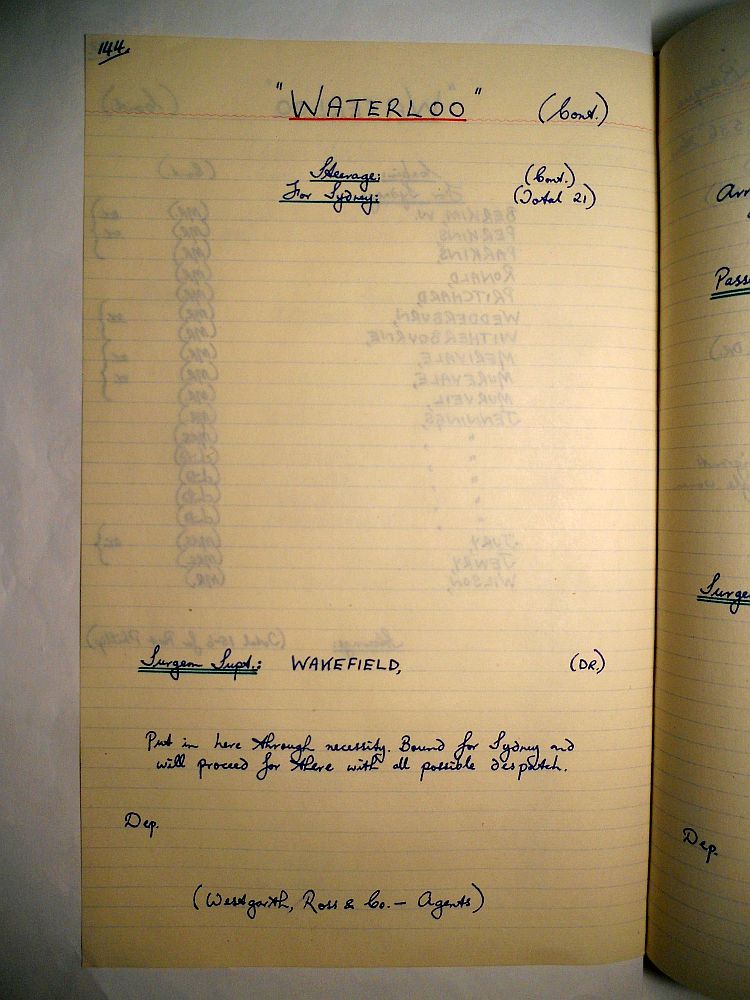 144
"WATERLOO" (Cont.)
Steerage: (Cont.)
For Sydney: (Total 21)
Surgeon Supt.: WAKEFIELD, (DR.)
Put in here through necessity. Bound for Sydney and
will proceed for there with all possible despatch.
Dep.
(Westgarth, Ross & Co. — Agents)
Arr
Pass
Surge
Dep.